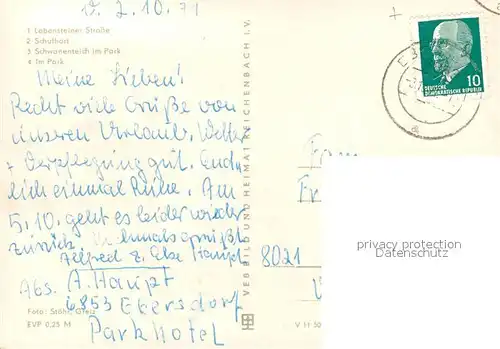 d. 2.10.71
1 Lobensteiner Straße
2 Schulhort
3 Schwanenteich im Park
4 Im Park
Meine Lieben!
Recht viele Grüße von
unserem Urlaub. Wetter
+ Verpflegung gut. End-
lich einmal Ruhe. Am
5.10. geht es leider wieder
zurück.
Alfred u. Else Haupt
Abs. A. Haupt
6853 Ebersdorf
Parkhotel
Foto: Stöhr, Greiz
EVP 0,25 M
VEB BILD UND HEIMAT REICHENBACH I. V.
V 11 50
10
DEUTSCHE
DEMOKRATISCHE REPUBLIK
8021
privacy protection
Datenschutz